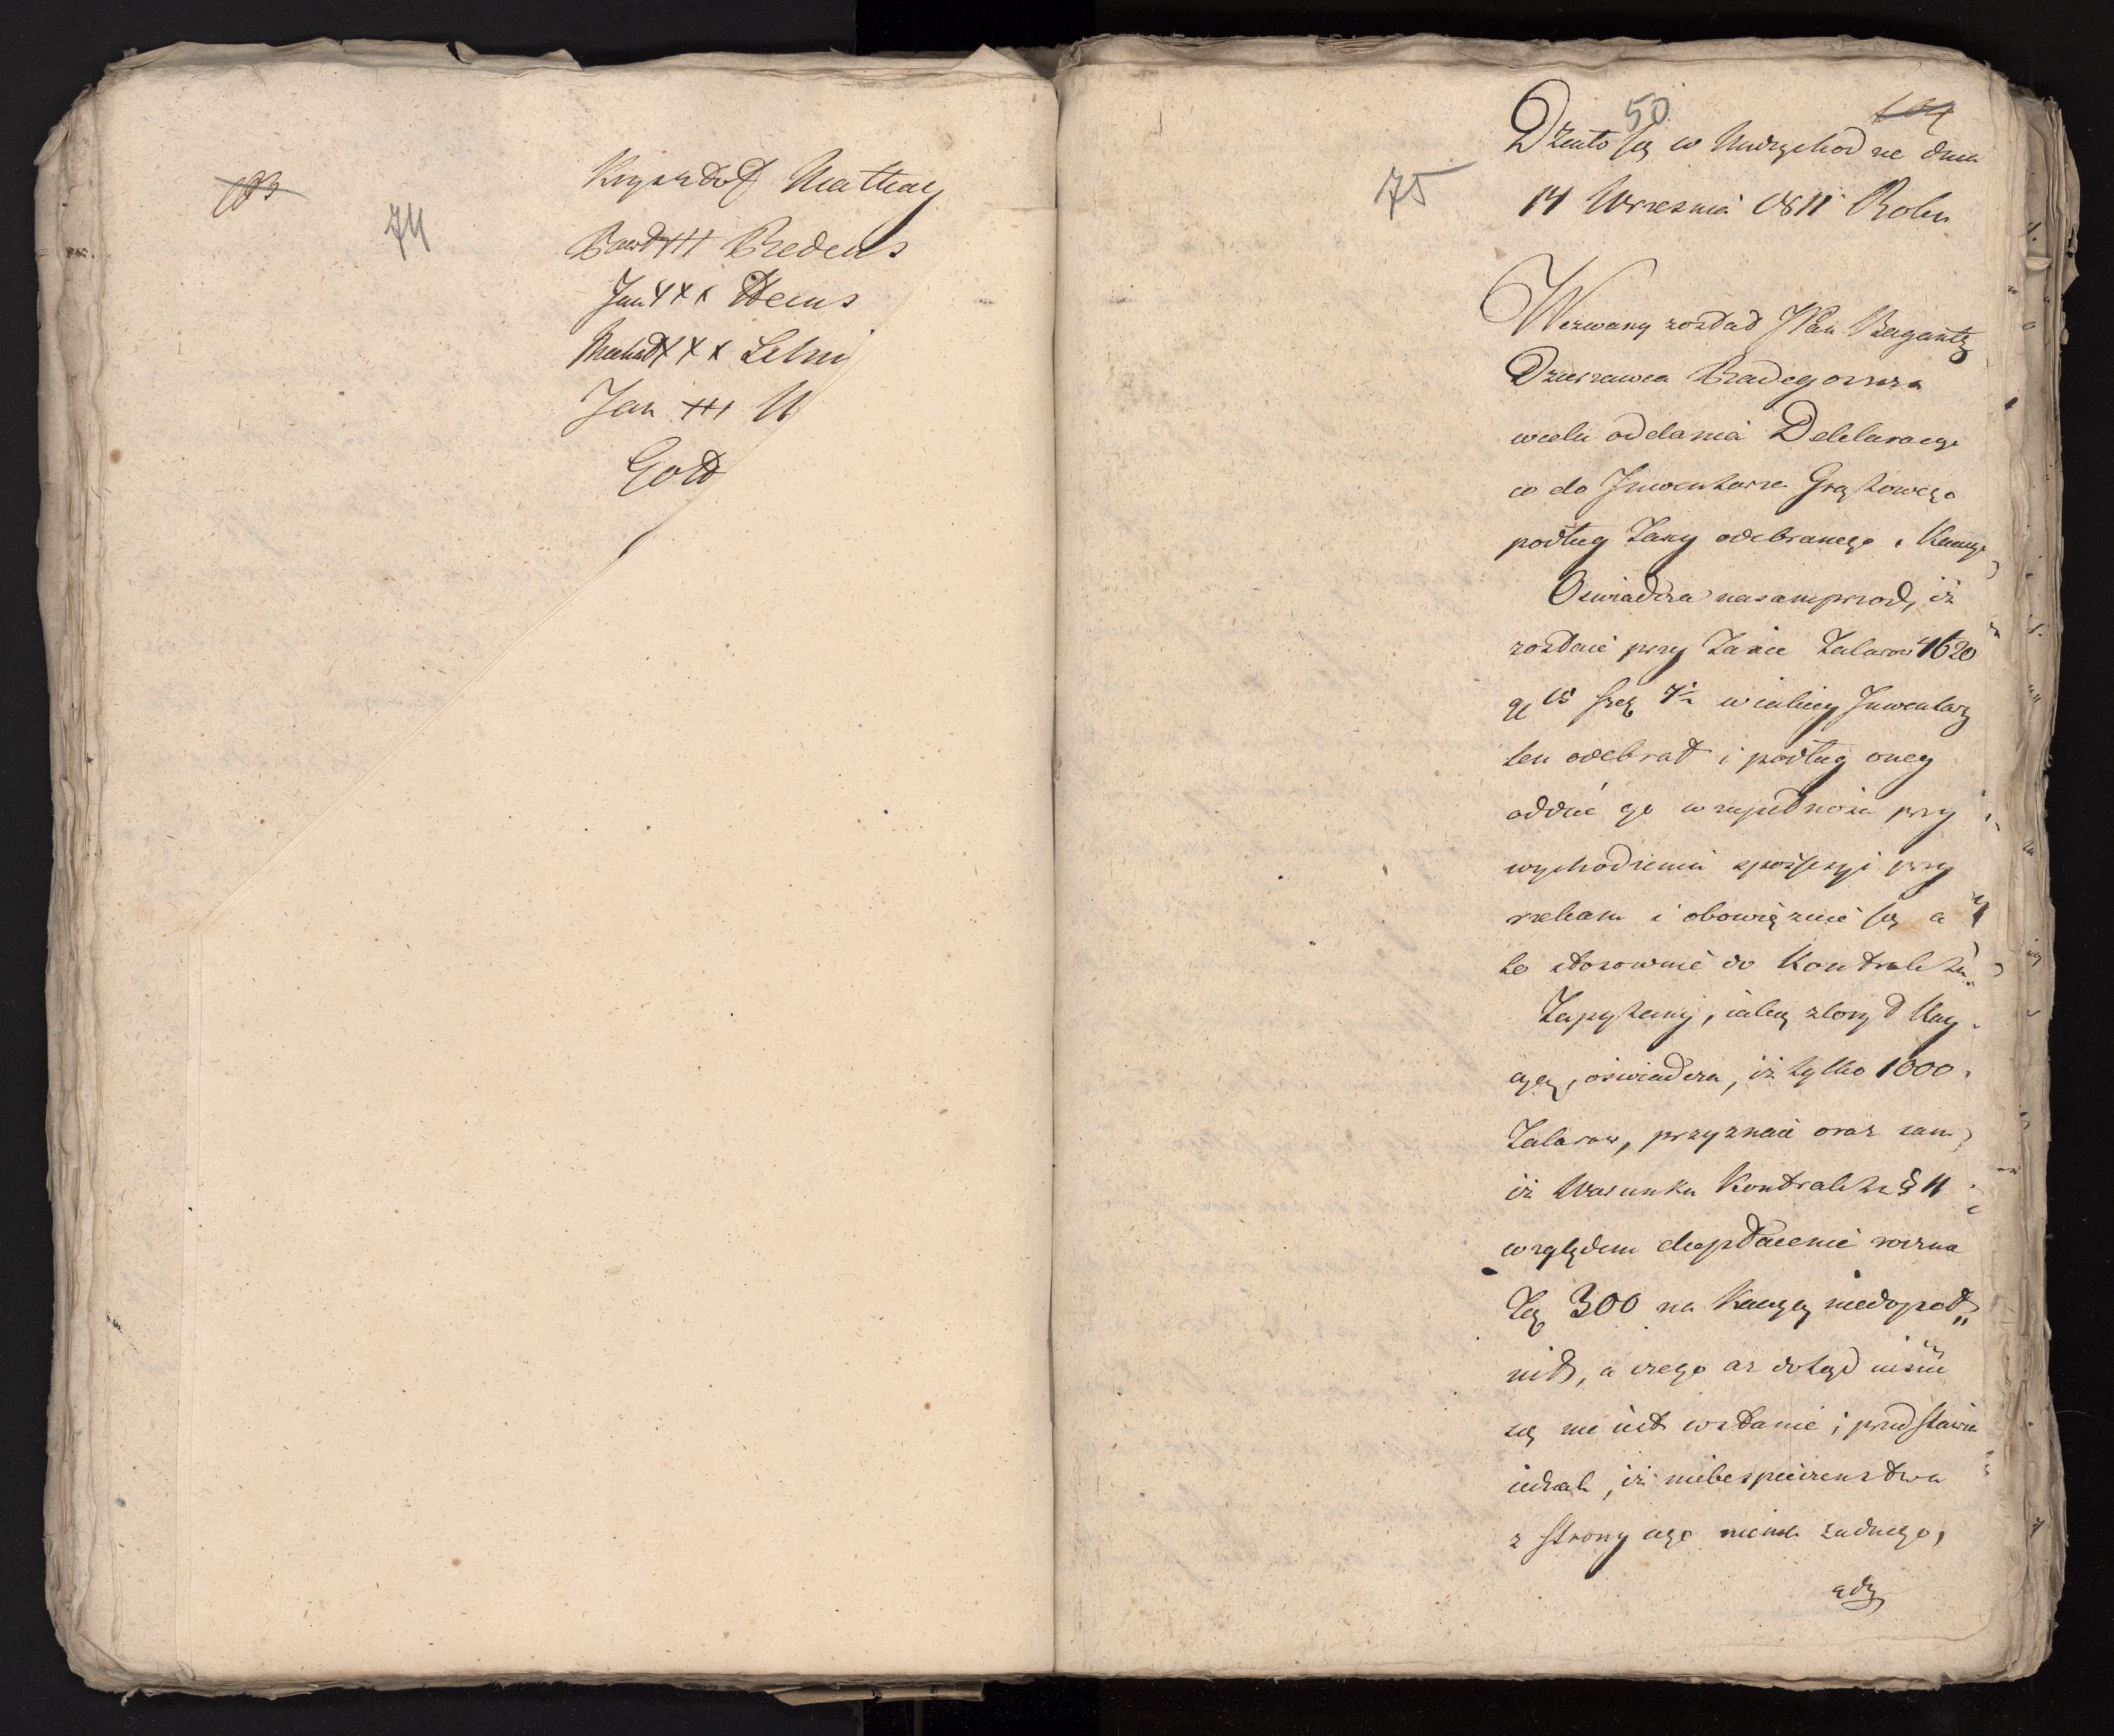 103
74
Krysztof Mathay
Bawd +++ Bredens
Jan +++ Heins
Michał +++ Lehn
Jan +++ U
Gott
50
104
75
Działo się w Międzychodzie dnia
14 Wrzesnia 1811 Roku
Wezwany został JPan Bagantz
Dzierzawca Radegoszcza
w celu oddania Deklaracyi
co do Jnwentarza Gruntowego
podług Taxy odebranego i Kaucyi
Oswiadcza nasamprzod, iż
zostaie przy Taxie Talarow 4620
gl 15 szel 7½ w iakiey Jnwentarz
ten odebrał i podług oney
oddać go w zupełności przy
wychodzeniu z possessyi przy
rzekam i obowięzuie się a
to stosownie do Kontraktu.
Zapytany, iaką złożył Kau
cyą, oswiadcza, iż tylko 1000
Talarow, przyznaie oraz sam
iż Warunku Kontraktu § 11
względem dopłacenia roczna
Tal 300 na Kaucyą niedopeł„
nił, a czego aż dotąd uiścić
się nie iest w stanie; przedstawia
iednak, iż niebespieczenstwa
z strony iego niema żadnego,
gdy